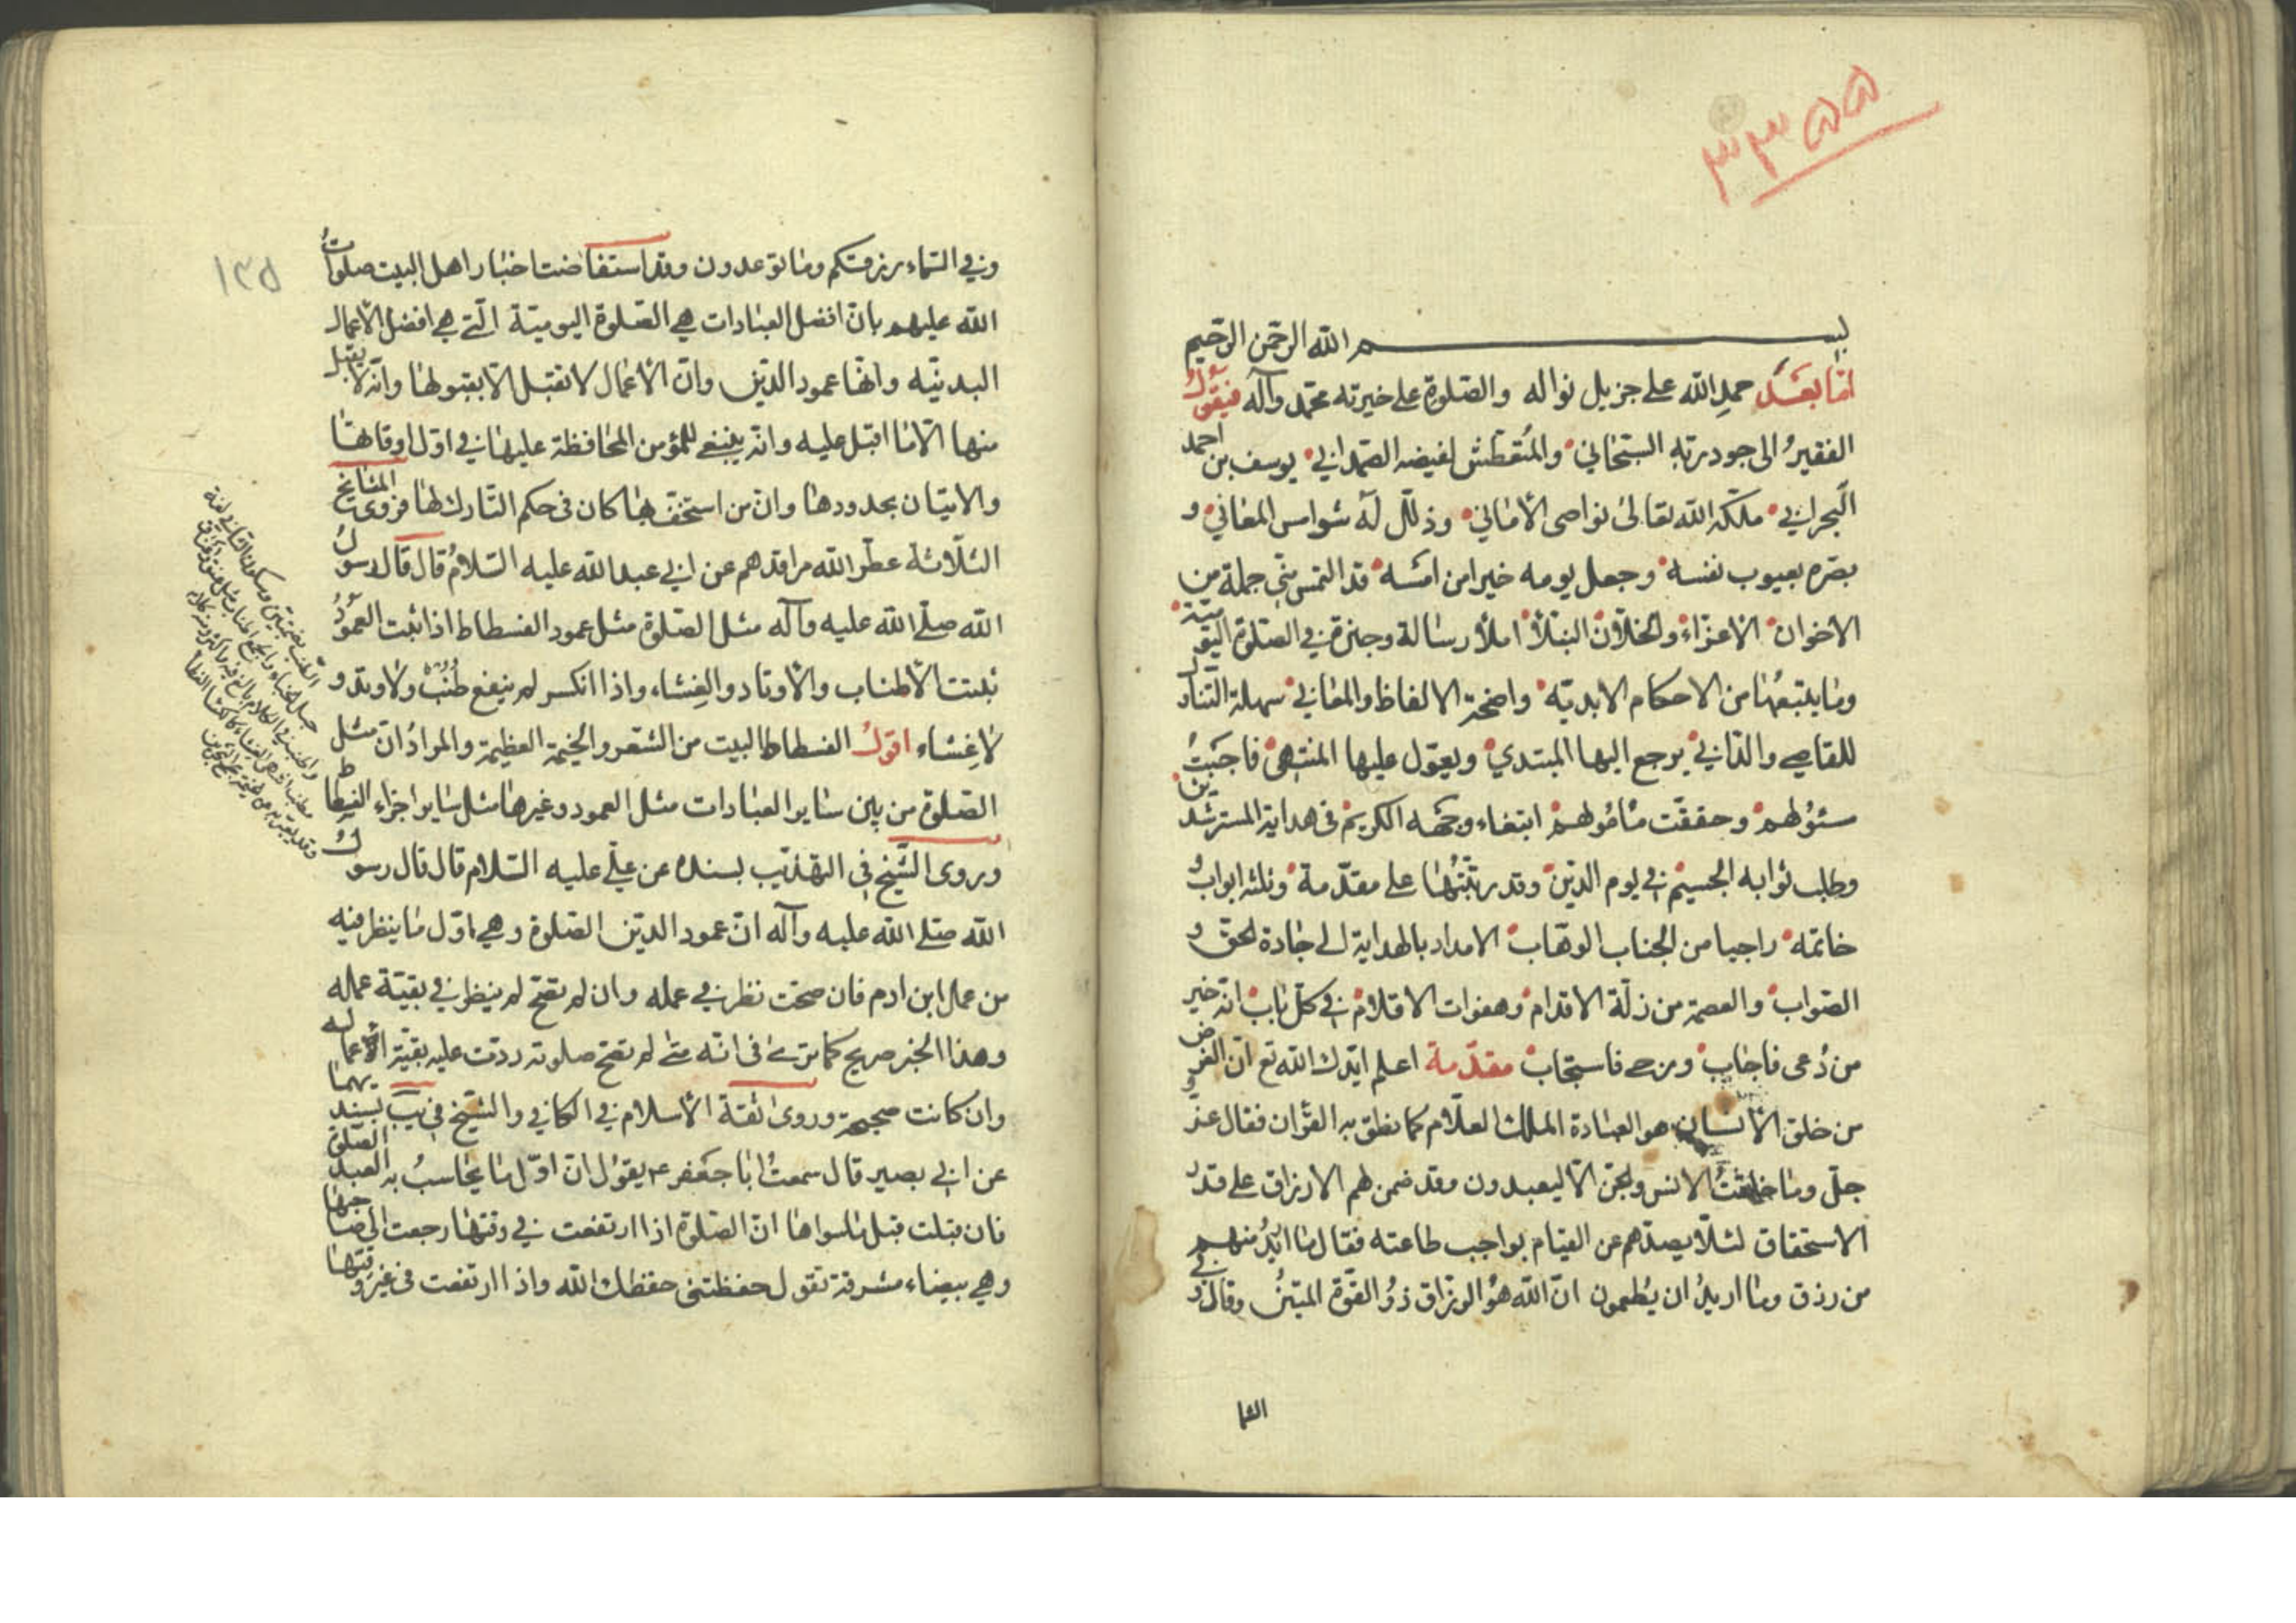 ٣٣٥٥
بسم الله الرحمن الرحيم
امّا بعد حمد الله على جزيل نواله والصّلوة على خيرته محمّد وآله فيقول
الفقيرُ الى جود ربّه السبحاني والمُتعطّش لفيضه الصّمداني يوسف بن احمد
البحراني ملّكه الله تعالى نواصى الأماني وذلّل له شوامس المعاني و
بصّره بعيوب نفسه وجعل يومه خيرا من امسه قد التمس منّي جملة من
الاخوان الاعزّاء والخلّان النبلاء املاء رسالة وجيزة في الصّلوة اليوميّة
وما يتبعها من الاحكام الابديّه واضحة الالفاظ والمعاني سهلة التناول
للقاصي والدّاني يرجع اليها المبتدي ويعوّل عليها المنتهى فاجبتُ
سئولهم وحقّقت مأمولهم ابتغاء وجهه الكريم في هداية المسترشدين
وطلب ثوابه الجسيم في يوم الدين وقد رتّبتُها على مقدّمة وثلثه ابواب و
خاتمه راجيا من الجناب الوهّاب الامداد بالهداية الى جادة الحقّ و
الصّواب والعصمة من زلّة الاقدام وهفوات الاقلام في كلّ باب انه خير
من دُعى فاجاب ورجى فاستجاب مقدّمة اعلم ايّدك الله تع انّ الغرض
من خلق الانسان هو العبادة الملك العلّام كما نطق به القرآن فقال عز و
جلّ وما خلقتُ الانس والجنّ الّا ليعبدون وقد ضمن لهم الارزاق على قدر
الاستحقاق لئلّا يصدّهم عن القيام بواجب طاعته فقال ما اريدُ منهم
من رزق وما اريدُ ان يُطعمون انّ الله هو الرزاق ذو القوّة المتينُ وقال و في
السما
١٣٥
وفي السّماء رزقكم وما توعدون وقد استفاضت اخبار اهل البيت صلوات
الله عليهم بانّ افضل العبادات هي الصّلوة اليوميّة الّتي هي افضل الاعمال
البدنيّه وانّها عمود الدّين وانّ الأعمال لا تقبل الّا بقبولها وانّه لا يقبل
منها الّا ما اقبل عليه وانّه ينبغي للمؤمن المحافظة عليها في اوّل اوقاتها
والاتيان بحدودها وانّ من استخفّ بها كان في حكم التّارك لها فروى المشايخ
الثلاثة عطّر الله مراقدهم عن ابي عبد الله عليه السّلامُ قال قال رسولُ
الله صلّى الله عليه وآله مثل الصّلوة مثل عمود الفسطاط اذا ثبت العمودُ
ثبتت الأطناب والأوتاد والغِشاء واذا انكسر لم ينفع طُنُبٌ ولا وتد و
لا غِشاء اقولُ الفسطاط البيت من الشعر والخيمة العظيمة والمرادُ ان مثل
الصّلوة من بين سائر العبادات مثل العمود وغيرها مثل سائر اجزاء الفسطاط
وروى الشّيخ في التهذيب بسنده عن علي عليه السّلام قال قال رسولُ
الله صلّى الله عليه وآله انّ عمود الدين الصّلوة وهي اوّل ما ينظر فيه
من عمل ابن ادم فان صحّت نظر في عمله وان لم تصحّ لم ينظر في بقيّة عمله
وهذا الخبر صريح كما ترى في انّه متى لم تصحّ صلوته ردّت عليه بقيّة الأعمال
وان كانت صحيحة وروى ثقة الأسلام في الكافي والشّيخ في يب بسنديهما
عن ابي بصير قال سمعتُ ابا جعفر ع يقول انّ اوّل ما يحاسبُ به العبد الصّلوة
فان قبلت قبل ما سواها انّ الصّلوة اذا ارتفعت في وقتها رجعت الى صاحبها
وهي بيضاء مشرقة تقول حفظتني حفظك الله واذا ارتفعت في غير وقتها